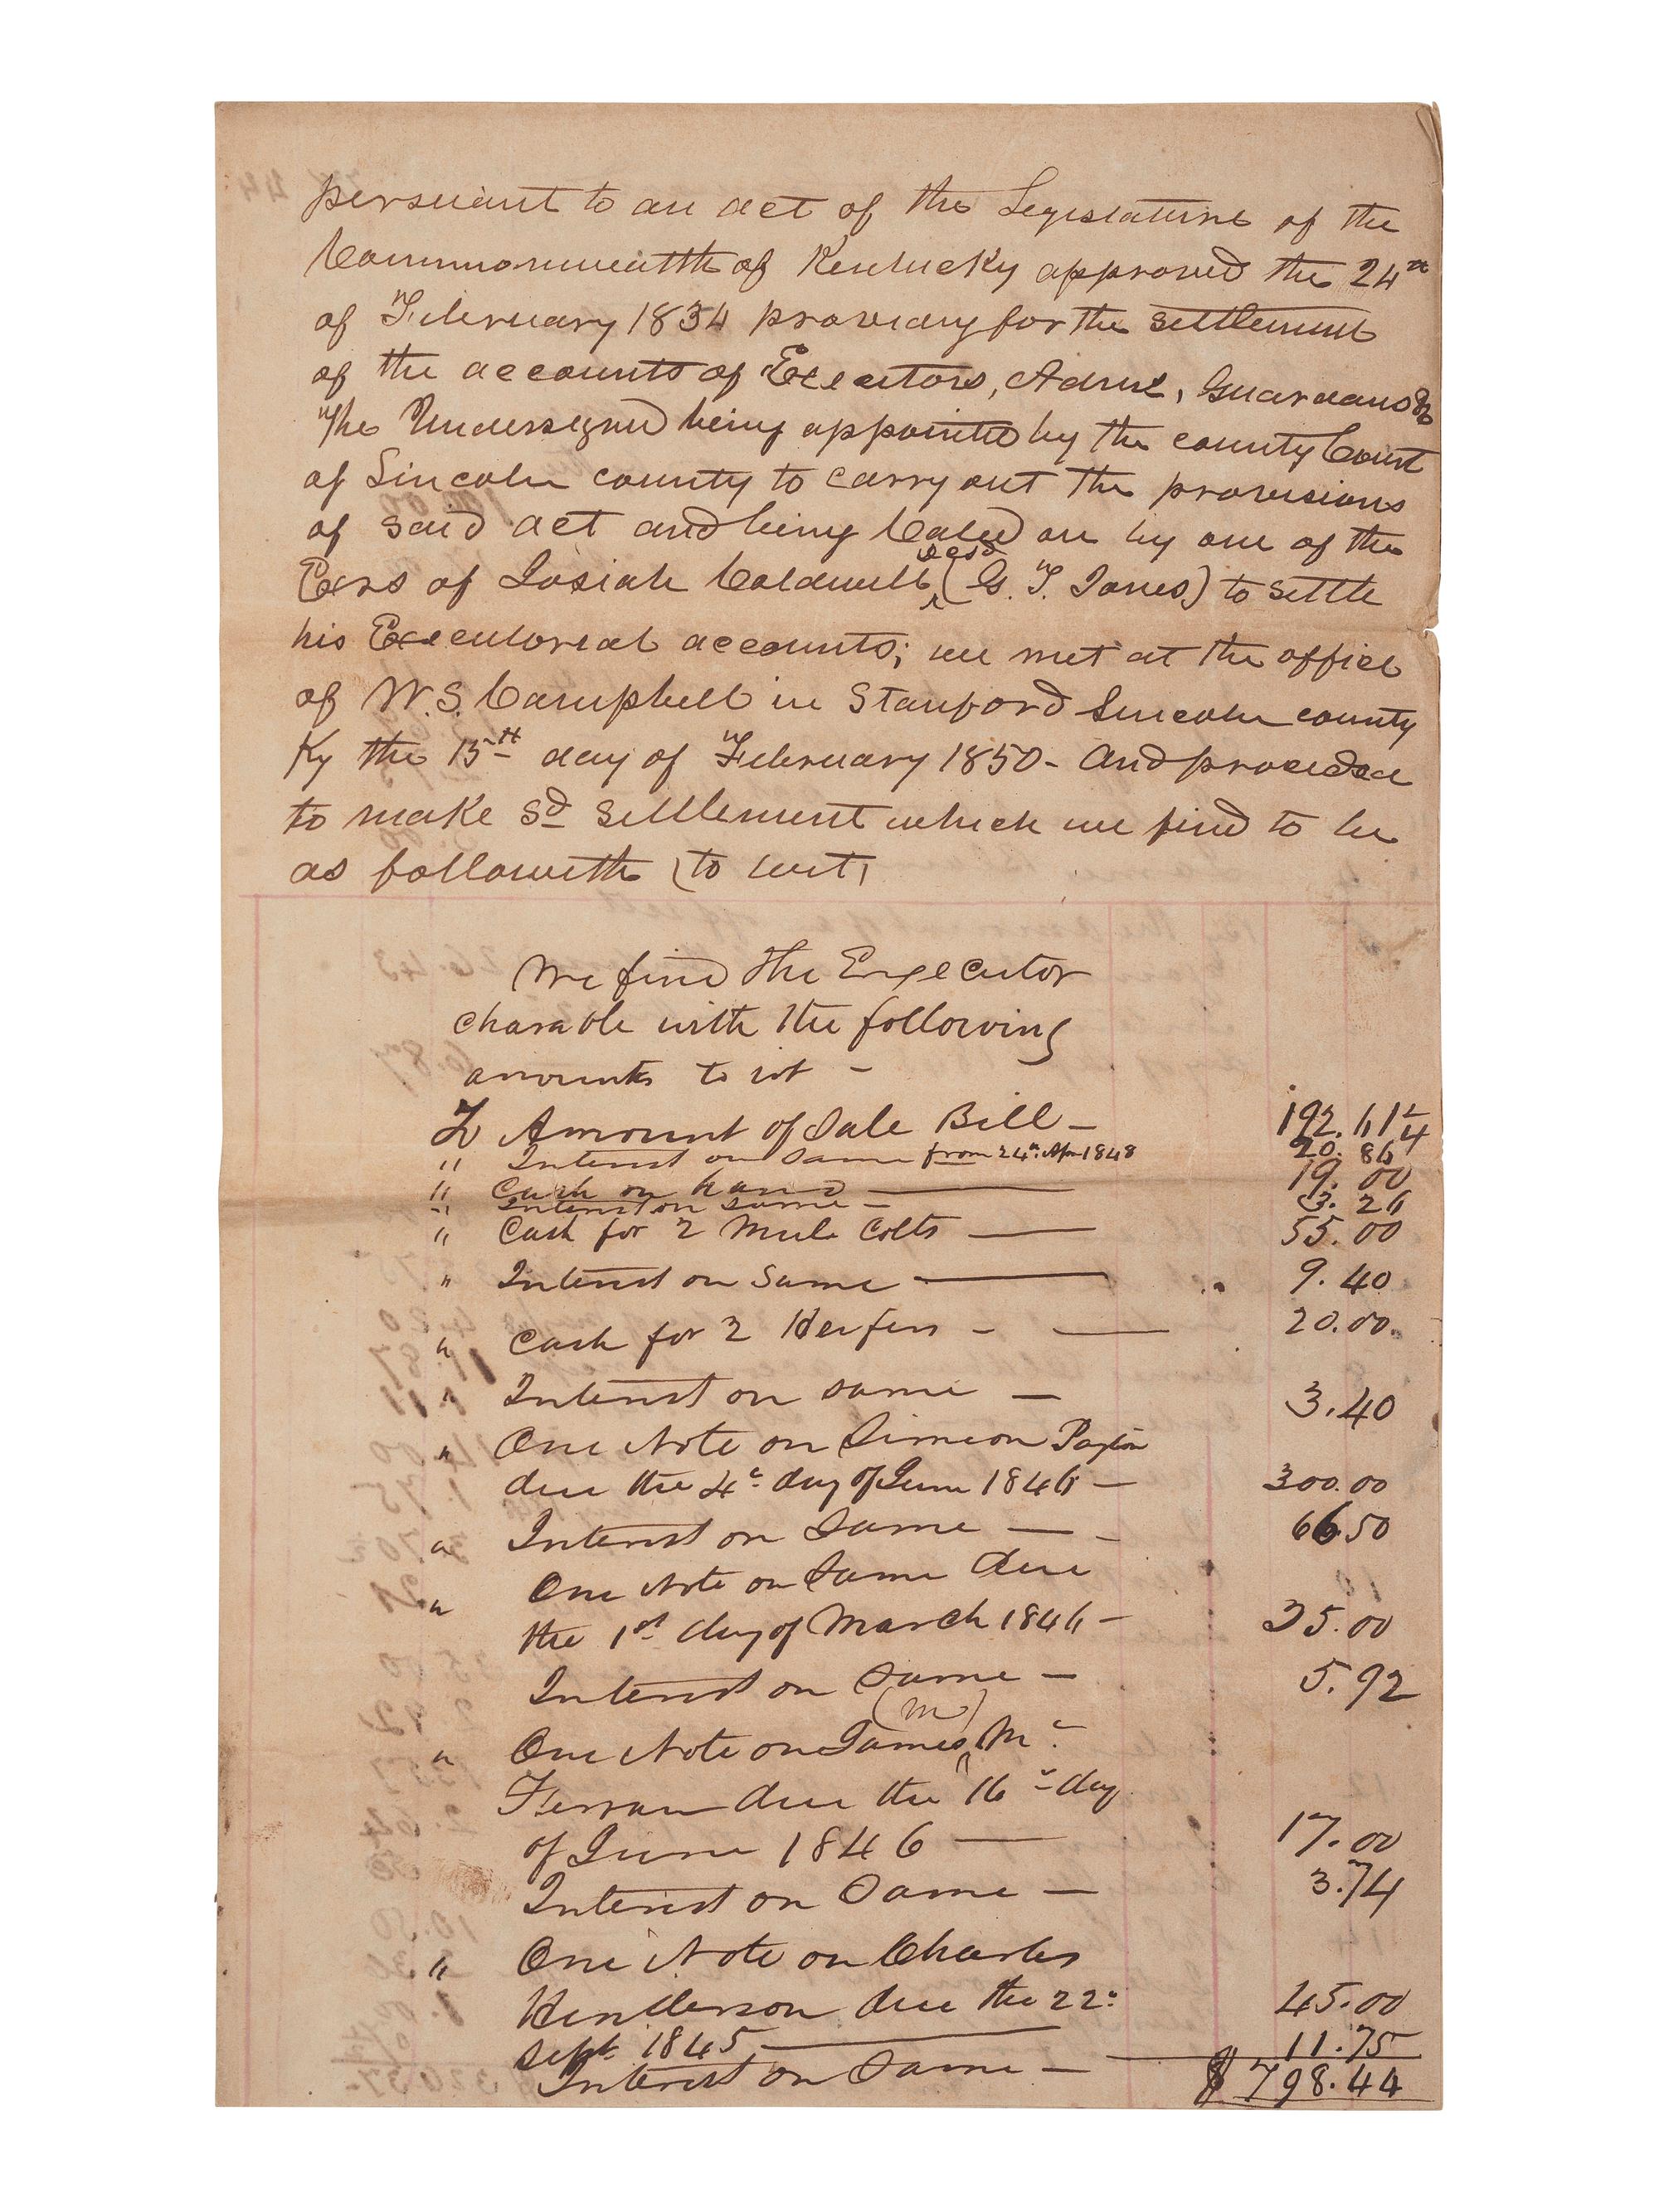 persuant to an act of the Legislature of the
Commonwealth of Kentucky approved the 24th
of February 1834 providing for the settlement
of the accounts of Executors, Admrs, Guardians &c
The Undersigned being appointed by the county Court
of Lincoln county to carry out the provisions
of said act and being Caled on by one of the
Exrs of Josiah Caldwell decd (G. T. Jones) to settle
his Executorial accounts; we met at the office
of W. S. Campbell in Stanford Lincoln county
Ky the 15th day of February 1850 - And proceded
to make sd settlement which we find to be
as followeth (to wit,
We find the Executor
charable with the following
amounts to wit -
To Amount of Sale Bill - 192.61 1/4
" Interest on Same from 24th Apr 1848 20.86
" Cash on hand 19.00
" Interest on same - 3.26
" Cash for 2 Mule Colts 55.00
" Interest on Same 9.40
" Cash for 2 Heifers - 20.00
" Interest on same - 3.40
" One Note on Simeon Payton
due the 4th day of June 1846 - 300.00
" Interest on Same - 66.50
" One Note on Same due
the 1st day of March 1846 - 25.00
Interest on Same - 5.92
" One Note on James (M) Mc
Ferran due the 16th day
of June 1846 17.00
Interest on Same - 3.74
" One Note on Charles
Henderson due the 22d 45.00
Sept. 1845
Interest on Same - 11.75
$798.44